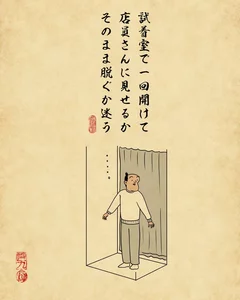 試着室で一回開けて
店員さんに見せるか
そのまま脱ぐか迷う
……